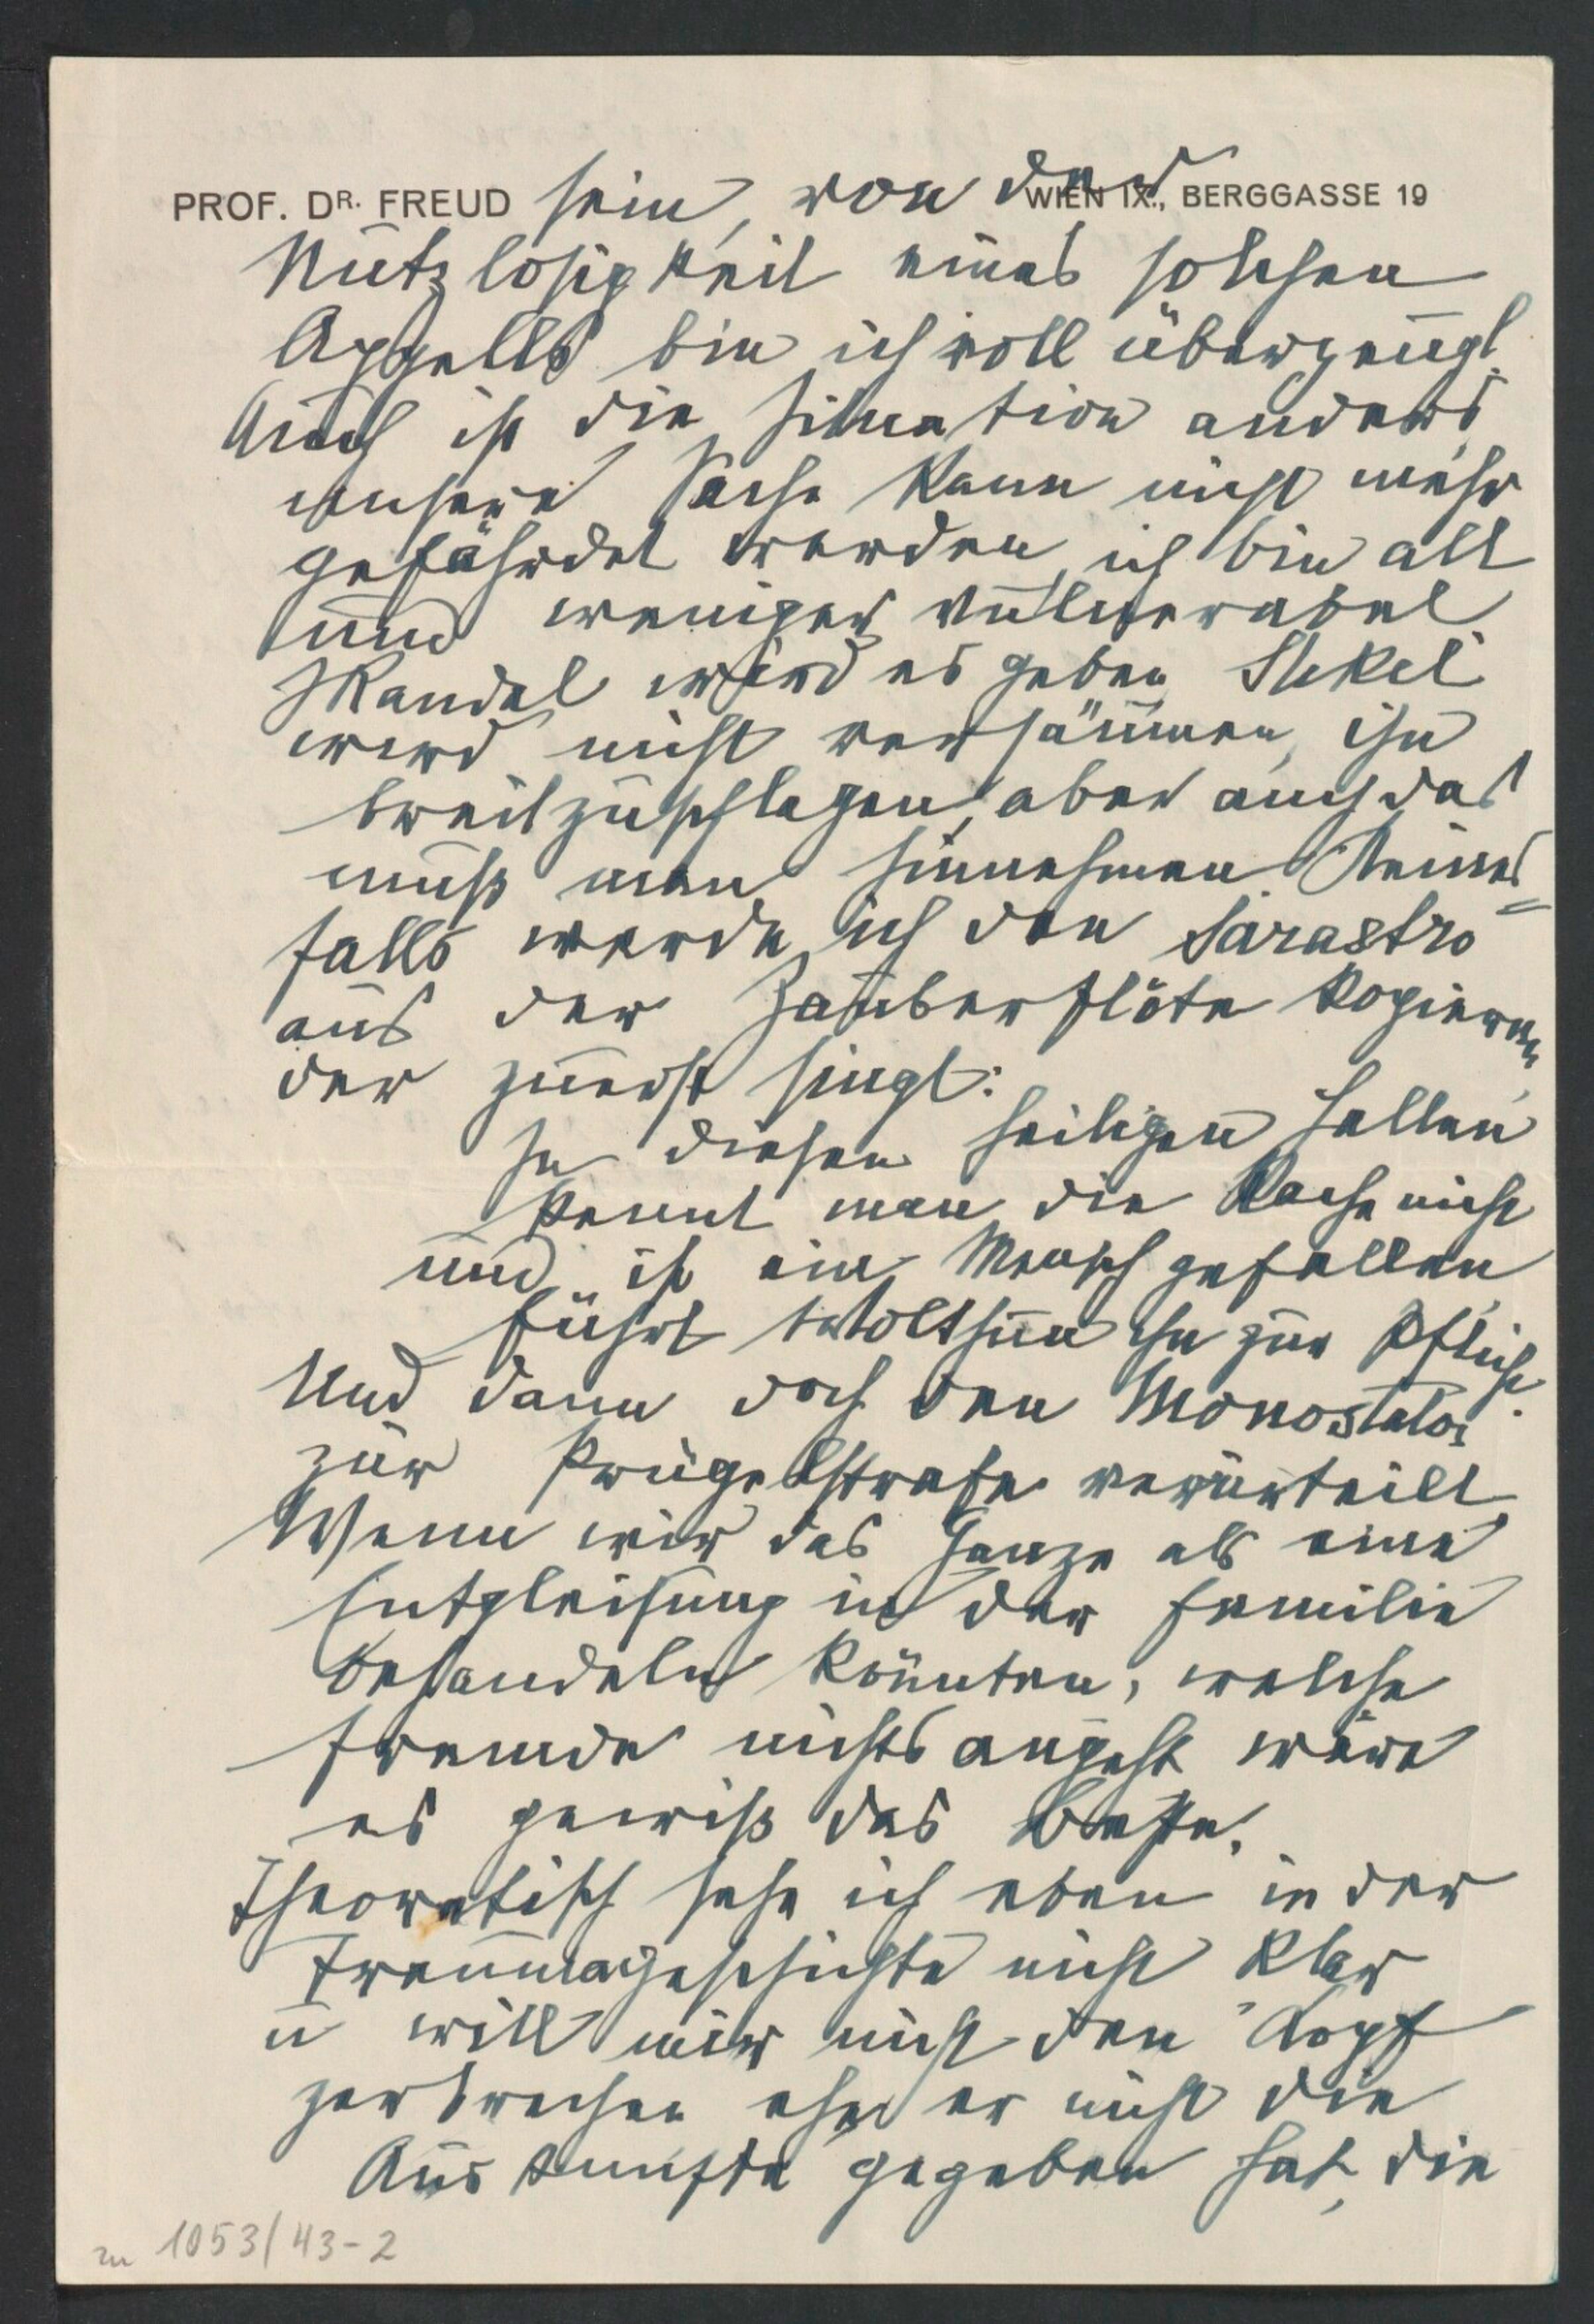 PROF. DR. FREUD WIEN IX., BERGGASSE 19
sein, von der
Nutzlosigkeit eines solchen
Appells bin ich voll überzeugt.
Auch ist die Situation anders,
unsere Sache kann nicht mehr
gefährdet werden, ich bin alt
und weniger vulnerabel
Skandal wird es geben, Stekel
wird nicht versäumen, ihn
breitzuschlagen, aber auch das
muß man hinnehmen. Keines=
falls werde ich den Sarastro
aus der Zauberflöte kopieren,
der zuerst singt:
In diesen heiligen Hallen
kennt man die Rache nicht
und ist ein Mensch gefallen
führt Wolthun ihn zur Pflicht.
Und dann doch den Monostatos
zur Prügelstrafe verurteilt
Wenn wir das Ganze als eine
Entgleisung in der Familie
behandeln könnten, welche
Fremde nichts angeht wäre
es gewiß das Beste.
Theoretisch sehe ich eben in der
Traumageschichte nicht klar
u will mir nicht den Kopf
zerbrechen ehe er nicht die
Auskünfte gegeben hat, die
zu 1053/43-2